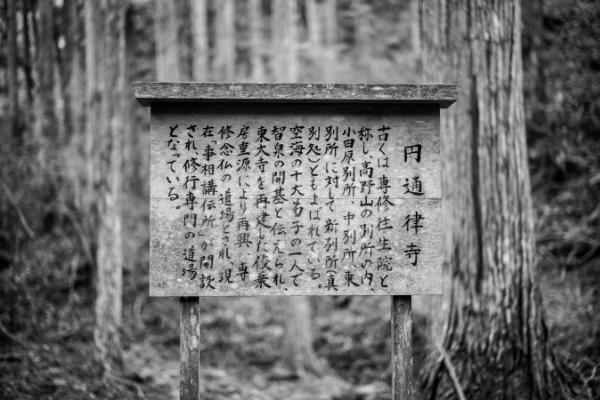 円通律寺
古くは専修往生院と
称し、高野山の別所の内、
小田原別所、中別所、東
別所に対して新別所(真
別処)ともよばれている。
空海の十大弟子の一人で
智泉の開基と伝えられ、
東大寺を再建した俊乗
房重源により再興、専
修念仏の道場とされ、現
在「事相講伝所」が開設
され、修行専門の道場
となっている。